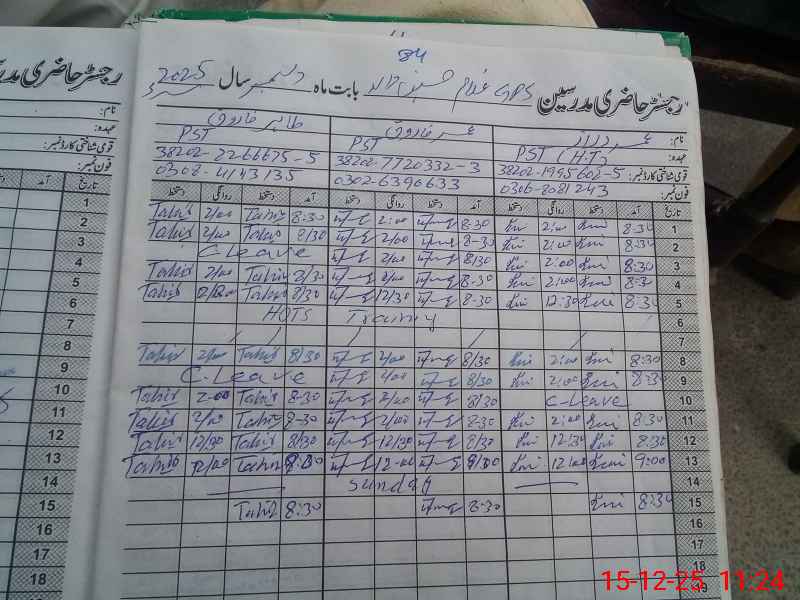 84
رجسٹر حاضری مدرسین GPS غلام حسین والا بابت ماہ دسمبر سال 2025
نام: عمر دراز عمر فاروق طاہر فاروق
عہدہ: PST (H.T) PST PST
قومی شناختی کارڈ نمبر: 38202-1995602-5 38202-7720332-3 38202-2266675-5
فون نمبر: 0306-8081243 0302-6396633 0308-4143135
تاریخ آمد دستخط روانگی دستخط آمد دستخط روانگی دستخط آمد دستخط روانگی دستخط
1 8:30 2:00 8:30 2:00 8:30 Tahir 2/00 Tahir
2 8:30 2:00 8-30 2/00 8/30 Tahir 2/00 Tahir
3 8:30 2:00 8/30 2/00 C-Leave
4 8:30 2:00 8:30 2/00 8/30 Tahir 2/00 Tahir
5 8:30 12:30 8:30 12/30 8/30 Tahir Tahir
6 HOTS Training
7
8 8:30 2:00 8/30 2/00 8/30 Tahir 2/00 Tahir
9 8:30 2:00 8/30 2/00 C-Leave
10 C-Leave 8/30 2/00 8-30 Tahir 2-00 Tahir
11 8:30 2:00 8:30 2/00 8-30 Tahir 2/00 Tahir
12 8:30 12:30 8/30 12/30 8/30 Tahir 12/30 Tahir
13 9:00 12:00 9/00 12-00 Tahir 12/00 Tahir
14 Sunday
15 8:30 8-30 8:30 Tahir
16
17
18
رجسٹر حاضری مدر
نام:
عہدہ:
قومی شناختی کارڈ نمبر:
فون نمبر:
تاریخ آمد
1
2
3
4
5
6
7
8
9
10
11
12
13
14
15
16
17
18
15-12-25 11:24